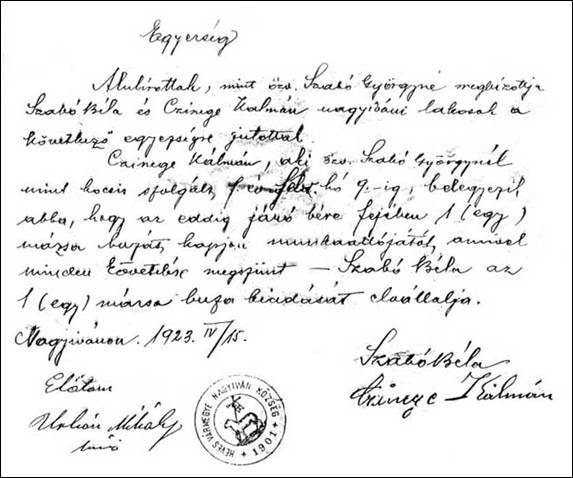 Egyesség
Alulírottak, mint özv. Szabó Györgyné megbízottja
Szabó Béla és Czinege Kálmán nagyiváni lakosok a
következő egyességre jutottak
Czinege Kálmán, aki özv. Szabó Györgynél
mint kocsis szolgált f. év hó 9.-ig, belegyezik
abba, hogy az eddig járó bére fejében 1 (egy)
mázsa buzát kapjon munkaadójától, amivel
minden követelése megszünt — Szabó Béla az
1 (egy) mázsa buza kiadását elvállalja.
Nagyivánon. 1923. IV/15.
Szabó Béla
Czinege Kálmán
Előttem
Mihály
biró
HEVES VÁRMEGYE NAGYIVÁN KÖZSÉG
1901